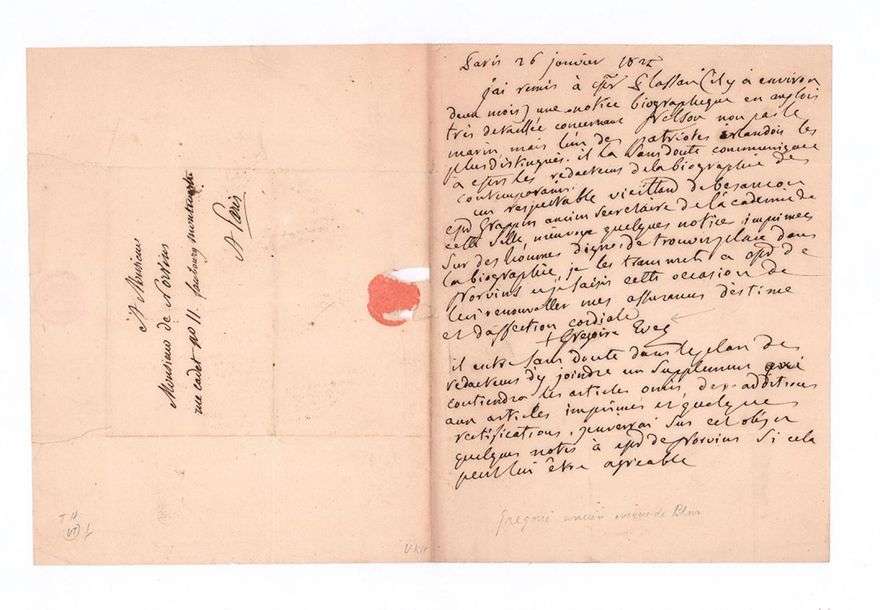 A Monsieur
Monsieur de Norvins
rue cadet no 11. faubourg montmartre
A Paris
Paris 26 janvier
j'ai remis à (il y a environ
deux mois) une notice biographique en anglois
très détaillée concernant non pas le
marin mais l'un des patriotes irlandois les
plus distingués. il l'a sans doute communiquée
à les redacteurs de la biographie des
contemporains.
un respectable vieillard de besancon
Grappin ancien secretaire de l'academie de
cette ville, m'envoye quelques notice imprimees
sur des hommes dignes de trouver place dans
la biographie, je les transmets a de
Norvins et je saisis cette occasion de
lui renouveller mes assurances d'estime
et d'affection cordiale
+ Grégoire Eveq
il entre sans doute dans le plan des
redacteurs d'y joindre un supplement qui
contiendra les articles omis des additions
aux articles imprimés et quelques
rectifications, j'enverrai sur cet objet
quelques notes à de Norvins si cela
peut lui être agreable
Grégoire ancien évêque de Blois